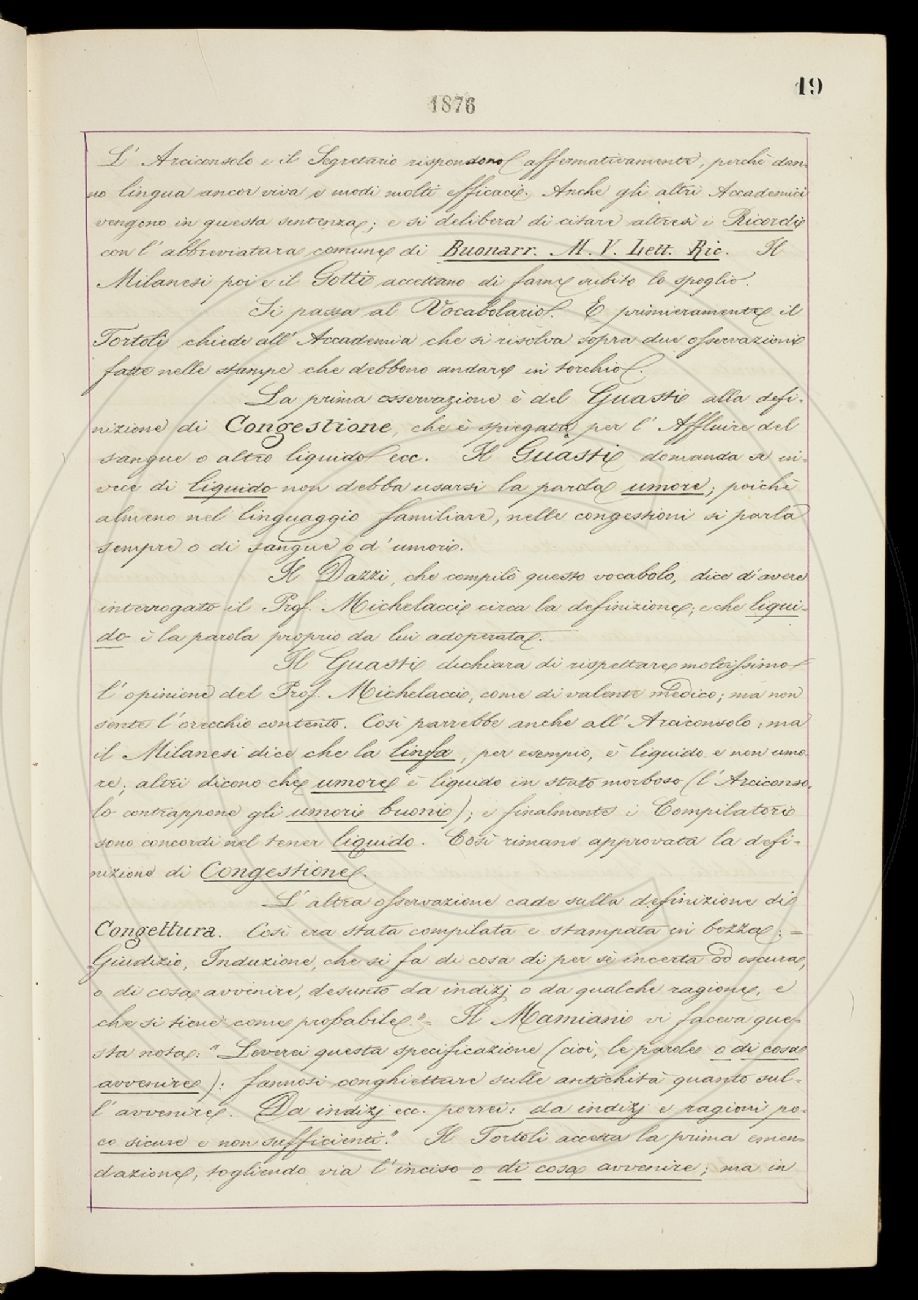 1876
19
L' Arciconsolo e il Segretario rispondono affermativamente, perchè dan-
no lingua ancor viva e modi molti efficaci. Anche gli altri Accademici
vengono in questa sentenza; e si delibera di citare altresì i Ricordi
con l' abbreviatura comune di Buonarr. M. V. Lett. Ric. Il
Milanesi poi e il Gotti accettano di farne subito lo spoglio.
Si passa al Vocabolario. E primieramente il
Tortoli chiede all' Accademia che si risolva sopra due osservazioni
fatte nelle stampe che debbono andare in torchio.
La prima osservazione è del Guasti alla defi-
nizione di Congestione, che è spiegata per l' Affluire del
sangue o altro liquido ecc. Il Guasti domanda se in-
vece di liquido non debba usarsi la parola umore; poichè
almeno nel linguaggio familiare, nelle congestioni si parla
sempre o di sangue o d' umori.
Il Dazzi, che compilò questo vocabolo, dice d' avere
interrogato il Prof. Michelacci circa la definizione; e che liqui-
do è la parola proprio da lui adoperata.
Il Guasti dichiara di rispettare moltissimo
l' opinione del Prof. Michelacci, come di valente medico; ma non
sente l' orecchio contento. Così parrebbe anche all' Arciconsolo; ma
il Milanesi dice che la linfa, per esempio, è liquido e non umo-
re; altri dicono che umore è liquido in stato morboso (l' Arciconso-
lo contrappone gli umori buoni); e finalmente i Compilatori
sono concordi nel tener liquido. Così rimane approvata la defi-
nizione di Congestione.
L' altra osservazione cade sulla definizione di
Congettura. Così era stata compilata e stampata in bozza: =
Giudizio, Induzione, che si fa di cosa di per sè incerta od oscura,
o di cosa avvenire, desunto da indizj o da qualche ragione, e
che si tiene come probabile" = Il Mamiani vi faceva que-
sta nota: " Leverei questa specificazione (cioè, le parole o di cosa
avvenire): fannosi conghietture sulle antichità quanto sul-
l' avvenire. Da indizj ecc. porrei: da indizj e ragioni po-
co sicure e non sufficienti." Il Tortoli accetta la prima emen-
dazione, togliendo via l' inciso o di cosa avvenire; ma in